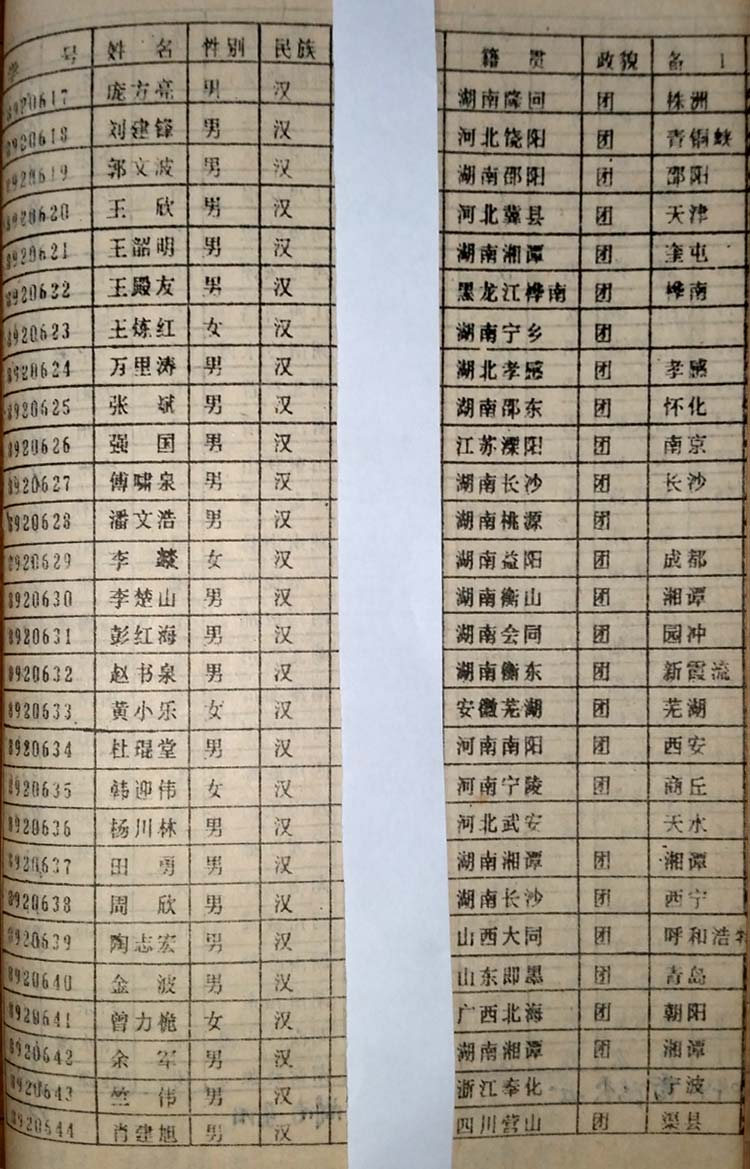 学 号 姓 名 性别 民族 籍 贯 政貌 备 1
8920617 庞方亮 男 汉 湖南隆回 团 株洲
8920618 刘建锋 男 汉 河北饶阳 团 青铜峡
8920619 郭文波 男 汉 湖南邵阳 团 邵阳
8920620 王 欣 男 汉 河北冀县 团 天津
8920621 王韶明 男 汉 湖南湘潭 团 奎屯
8920622 王殿友 男 汉 黑龙江桦南 团 桦南
8920623 王炼红 女 汉 湖南宁乡 团
8920624 万里涛 男 汉 湖北孝感 团 孝感
8920625 张 斌 男 汉 湖南邵东 团 怀化
8920626 强 国 男 汉 江苏溧阳 团 南京
8920627 傅啸泉 男 汉 湖南长沙 团 长沙
8920628 潘文浩 男 汉 湖南桃源 团
8920629 李 女 汉 湖南益阳 团 成都
8920630 李楚山 男 汉 湖南衡山 团 湘潭
8920631 彭红海 男 汉 湖南会同 团 园冲
8920632 赵书泉 男 汉 湖南衡东 团 新霞流
8920633 黄小乐 女 汉 安徽芜湖 团 芜湖
8920634 杜琨堂 男 汉 河南南阳 团 西安
8920635 韩迎伟 女 汉 河南宁陵 团 商丘
8920636 杨川林 男 汉 河北武安 天水
8920637 田 勇 男 汉 湖南湘潭 团 湘潭
8920638 周 欣 男 汉 湖南长沙 团 西宁
8920639 陶志宏 男 汉 山西大同 团 呼和浩特
8920640 金 波 男 汉 山东即墨 团 青岛
8920641 曾力桅 女 汉 广西北海 团 朝阳
8920642 余 军 男 汉 湖南湘潭 团 湘潭
8920643 竺 伟 男 汉 浙江奉化 宁波
8920644 肖建旭 男 汉 四川营山 团 渠县